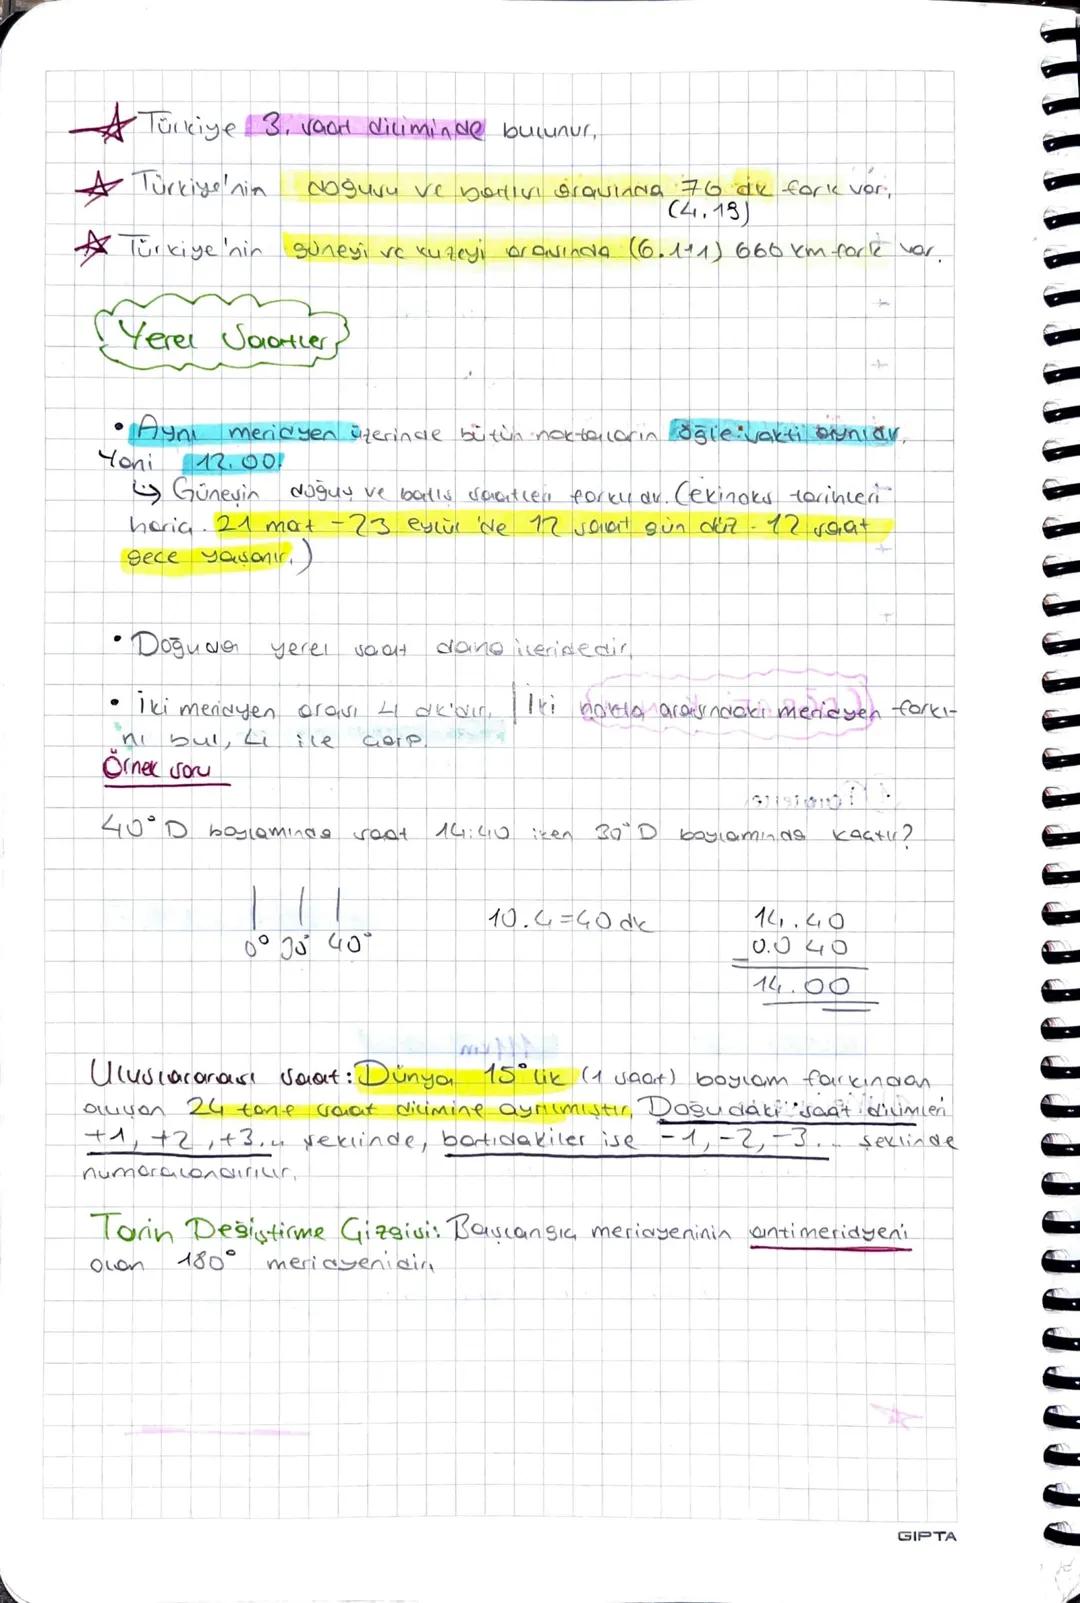 Türkiye 3. saat diliminde bulunur.
Türkiye'nin doğusu ve batısı arasında 76 dk fark var.
(4.19)
Türkiye'nin güneyi ve kuzeyi arasında (6.111) 666 km fark var.
Yerel Saatler
• Aynı meridyen üzerinde bütün noktaların öğle vakti aynıdır.
Yani 12.00.
↳ Güneşin doğuş ve batış saatleri farklıdır. (ekinoks tarihleri
hariç. 21 mart - 23 eylül'de 12 saat gündüz - 12 saat
gece yaşanır.)
• Doğuda yerel saat daha ileridedir.
• İki meridyen arası 4 dk'dır. | İki nokta arasındaki meridyen farkı-
nı bul, 4 ile çarp.
Örnek soru
40° D boylamında saat 14:40 iken 30° D boylamında kaçtır?
0° 30° 40°
10.4=40 dk
14.40
0.040
14.00
Uluslararası saat: Dünya 15°lik (1 saat) boylam farkından
oluşan 24 tane saat dilimine ayrılmıştır. Doğudaki saat dilimleri
+1, +2, +3.. şeklinde, batıdakiler ise -1, -2, -3... şeklinde
numaralandırılır.
Tarih Değiştirme Çizgisi: Başlangıç meridyeninin antimeridyeni
olan 180° meridyenidir.
GIPTA